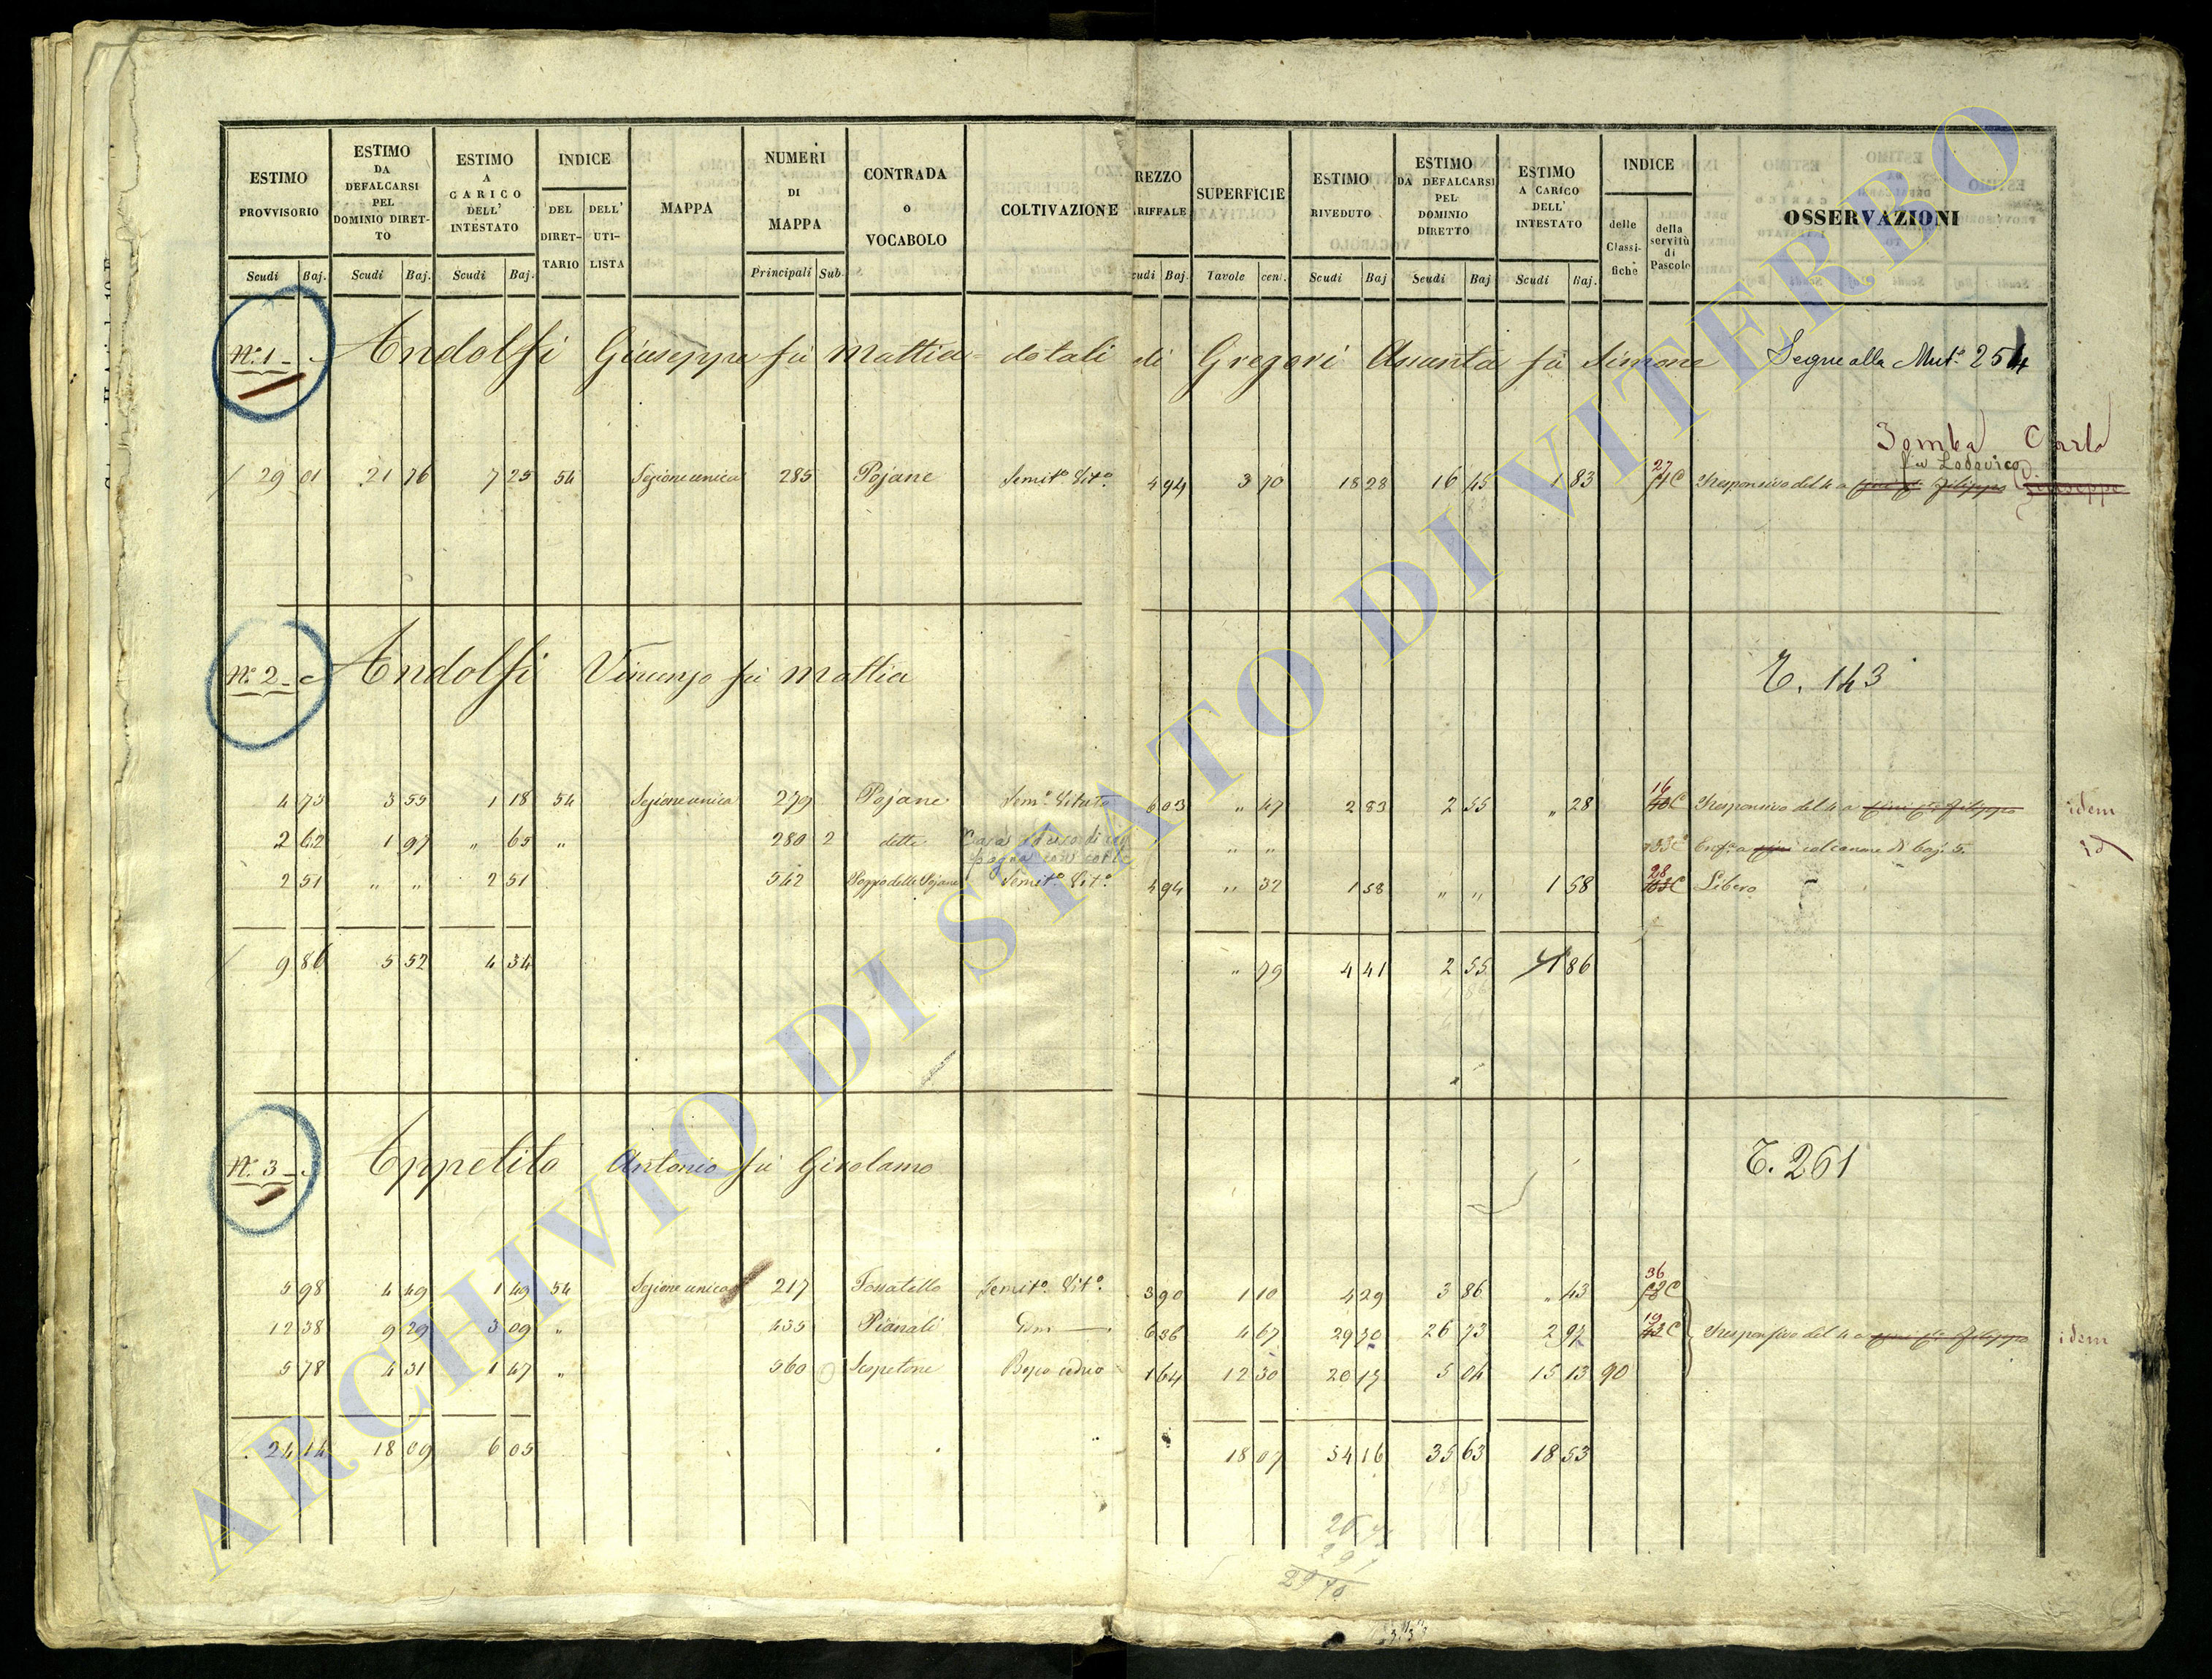 ESTIMO PROVVISORIO Scudi Baj.
ESTIMO DA DEFALCARSI PEL DOMINIO DIRET-TO Scudi Baj.
ESTIMO A CARICO DELL' INTESTATO Scudi Baj.
INDICE DEL DIRET-TARIO DELL' UTI-LISTA
MAPPA
NUMERI DI MAPPA Principali Sub.
CONTRADA o VOCABOLO
COLTIVAZIONE
REZZO RIFFALE udi Baj.
SUPERFICIE Tavole cen.
ESTIMO RIVEDUTO Scudi Baj
ESTIMO DA DEFALCARSI PEL DOMINIO DIRETTO Scudi Baj
ESTIMO A CARICO DELL' INTESTATO Scudi Baj.
INDICE delle Classi-fiche della servitù di Pascolo
OSSERVAZIONI
N.° 1 Andolfi Giuseppe fù Mattia dotali di Gregori Assunta fù Simone Segue alla Mut.e 254
Zomba Carlo
fu Lodovico
29 01 21 76 7 25 54 Sezione unica 285 Pojane Semit.o Vit.o 4 94 3 70 18 28 16 45 1 83 27 C Responsivo del 4 a Filippo Giuseppe
N.° 2 Andolfi Vincenzo fù Mattia T. 143
4 73 3 55 1 18 54 Sezione unica 279 Pojane Sem.o Vitato 6 03 " 47 2 83 2 55 " 28 16 C Responsivo del 4 a Filippo idem
2 62 1 97 " 65 " 280 2 detto Casa con corte " " Enf.a a col canone di baj. 5. id
2 51 " " 2 51 542 Poggio delle Pojane Semit.o Vit.o 4 94 " 32 1 58 " " 1 58 28 C Libero
9 86 5 52 4 34 " 79 4 41 2 55 1 86
N.° 3 Appetito Antonio fù Girolamo T. 261
5 98 4 49 1 49 54 Sezione unica 217 Fossatello Semit.o Vit.o 3 90 1 10 4 29 3 86 " 43 36 C
12 38 9 29 3 09 " 435 Pianali Idm 6 36 4 67 29 70 26 73 2 97 19 C Responsivo del 4 a Filippo idem
5 78 4 31 1 47 " 560 Scopetone Bosco ceduo 1 64 12 30 20 17 5 04 15 13 90
24 14 18 09 6 05 18 07 54 16 35 63 18 53
29 70
ARCHIVIO DI STATO DI VITERBO